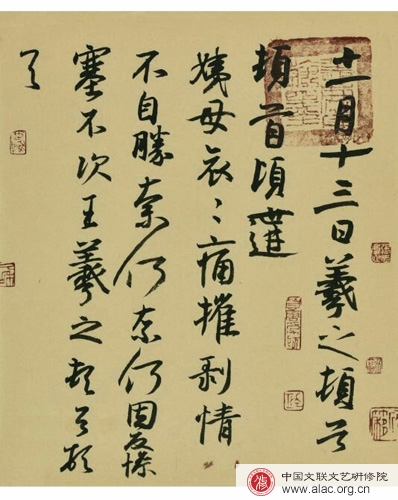 十一月十三日羲之頓首
頓首頃遘
姨母哀〻痛摧剥情
不自勝奈何奈何因反慘
塞不次王羲之頓首頓
首
中国文联文艺研修院
www.alac.org.cn